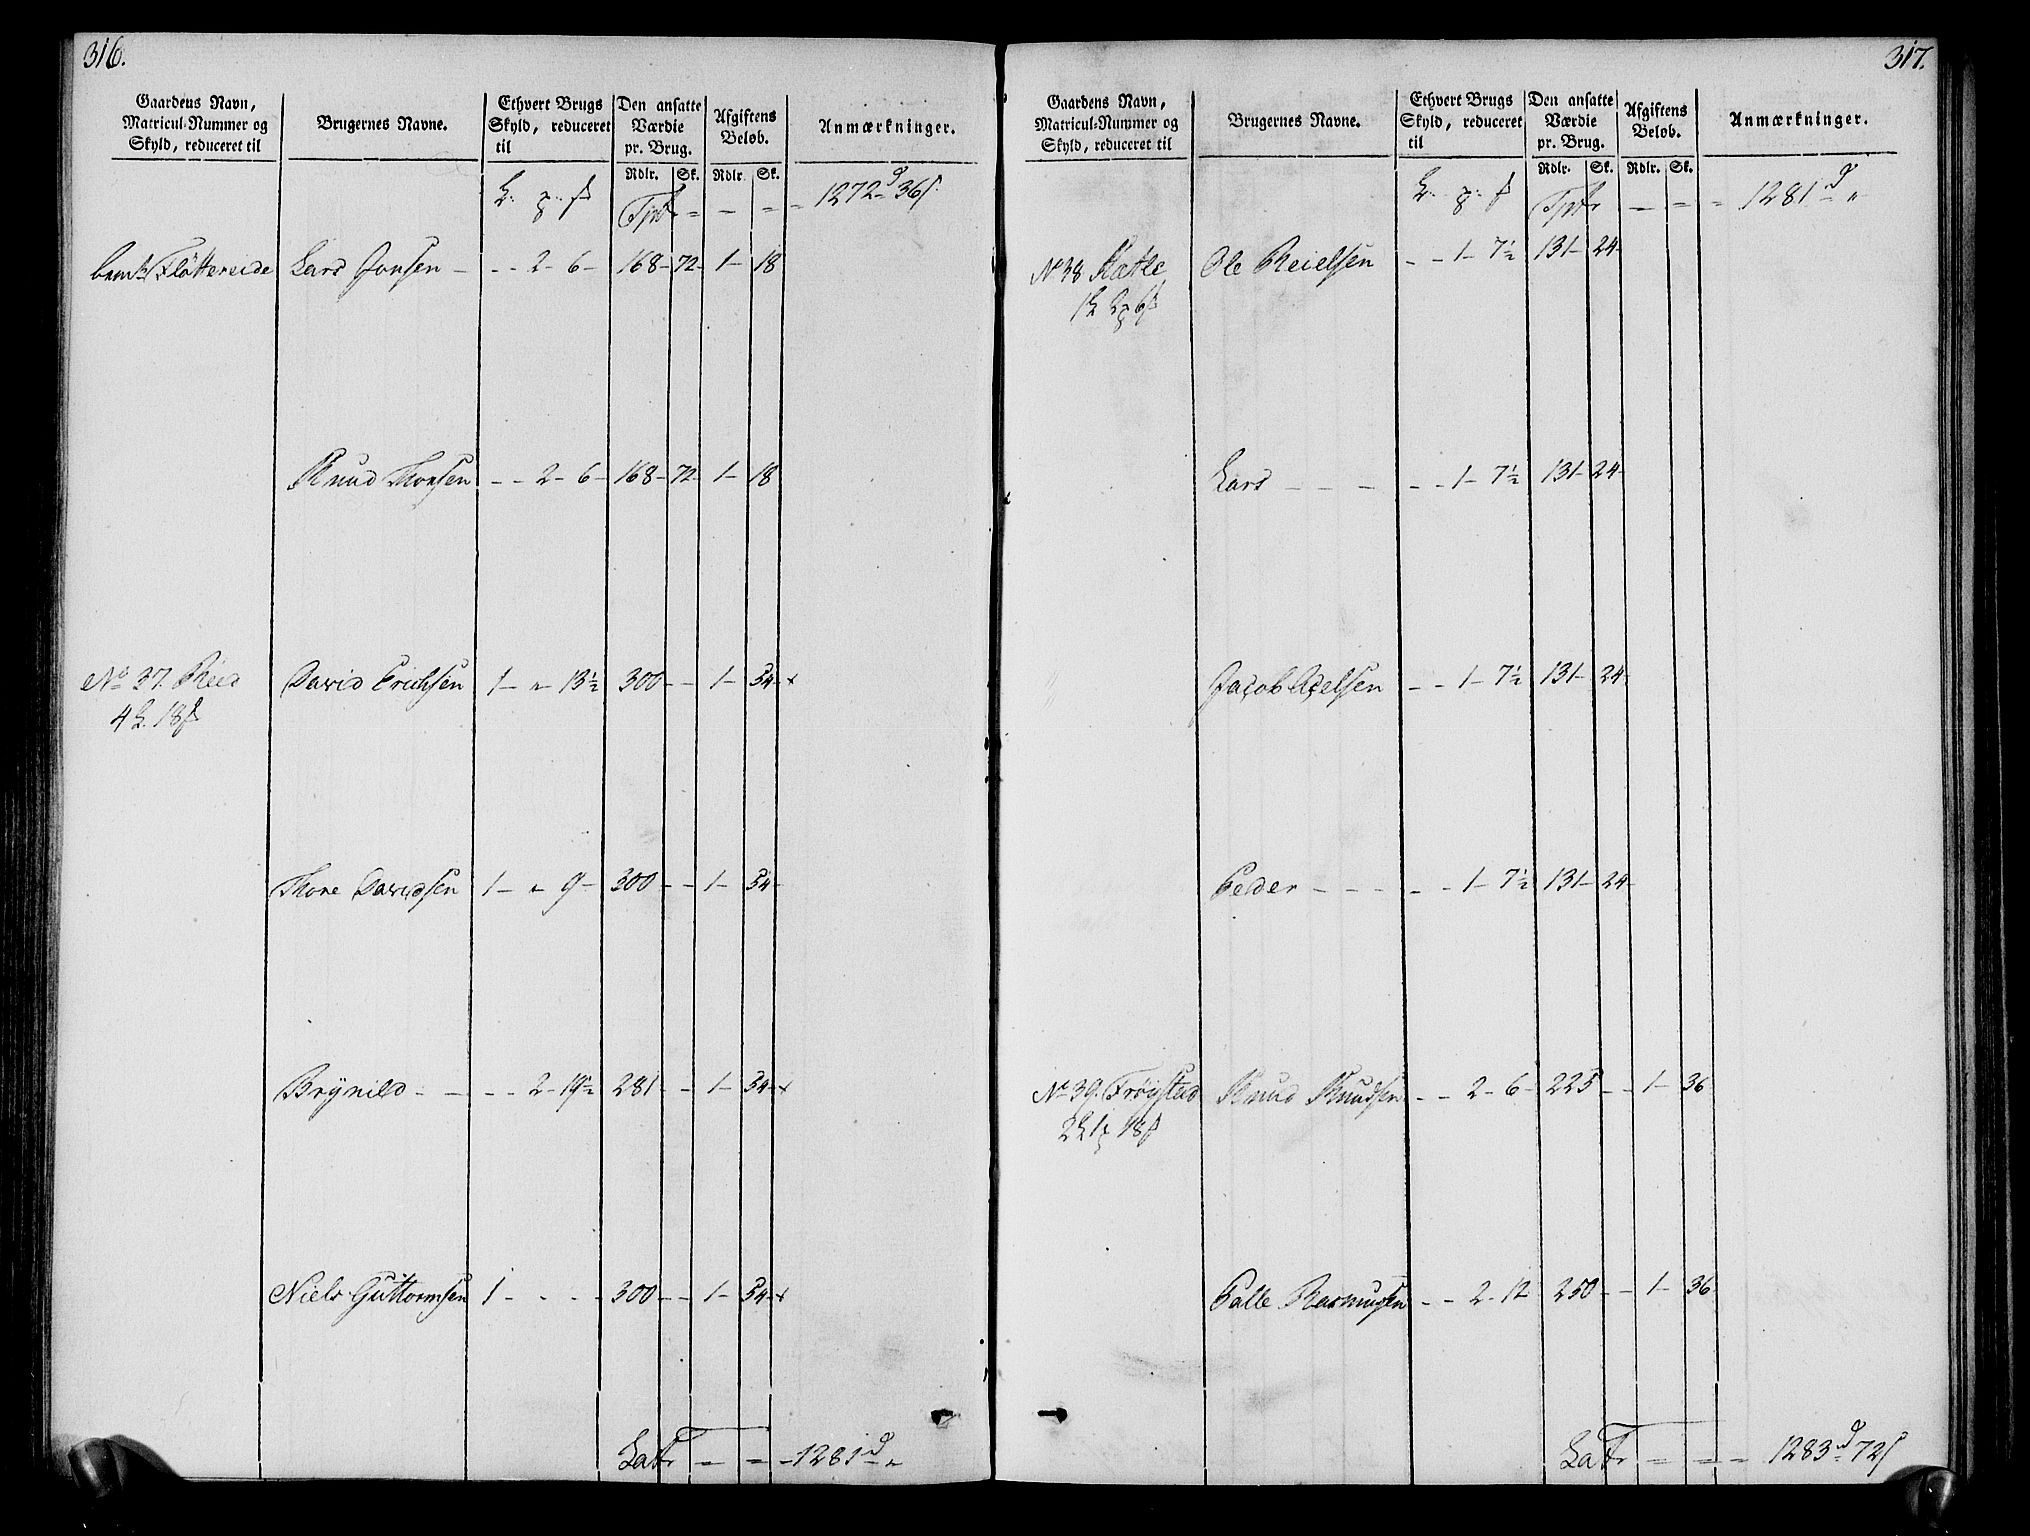 316.
Gaardens Navn, Matricul-Nummer og Skyld, reduceret til | Brugernes Navne. | Ethvert Brugs Skyld, reduceret til | Den ansatte Værdie pr. Brug. | Afgiftens Beløb. | Anmærkninger.
Rdlr. Sk. Rdlr. Sk.
Tptr = - = = 1272 d 36 s
Fløttereide Lars Jonsen - - - 2 - 6 - 168 - 72 - 1 - 18
Knud Thorsen - - 2 - 6 - 168 - 72 - 1 - 18
No 37. Reed David Erichsen 1 - " - 13½ 300 - - 1 - 54 - x
4 L. 18
Thore Davidsen 1 - " - 9 - 300 - - 1 - 54 -
Brynild - - - - - 2 - 19½ 281 - - 1 - 54 - x
Niels Guttormsen 1 - - - - 300 - - 1 - 54 - x
Latr = = - 1281 d "
317.
Gaardens Navn, Matricul-Nummer og Skyld, reduceret til | Brugernes Navne. | Ethvert Brugs Skyld, reduceret til | Den ansatte Værdie pr. Brug. | Afgiftens Beløb. | Anmærkninger.
Rdlr. Sk. Rdlr. Sk.
Tptr - = = 1281 d "
No 38 Ole Reielsen - - 1 - 7½ 131 - 24 -
Lars - - - - - 1 - 7½ 131 - 24 -
Jacob - - 1 - 7½ 131 - 24 -
Peder - - - - - 1 - 7½ 131 - 24 -
No 39. Frøystad Knud Knudsen - - 2 - 6 - 225 - - 1 - 36
Palle Rasmusen - - 2 - 12 250 - - 1 - 36
Latr = = = 1283 d 72 s